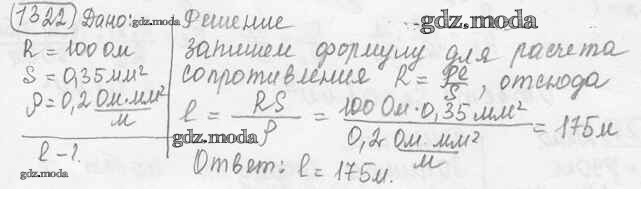 1322 Дано: Решение
gdz.moda
R = 100 Ом
S = 0,35 мм²
ρ = 0,2 Ом·мм²/м
l - ?
gdz.moda
запишем формулу для расчета
сопротивления R = ρl/S, отсюда
l = RS/ρ = 100 Ом · 0,35 мм² / 0,2 Ом·мм²/м = 175 м
gdz.moda
Ответ: l = 175 м.